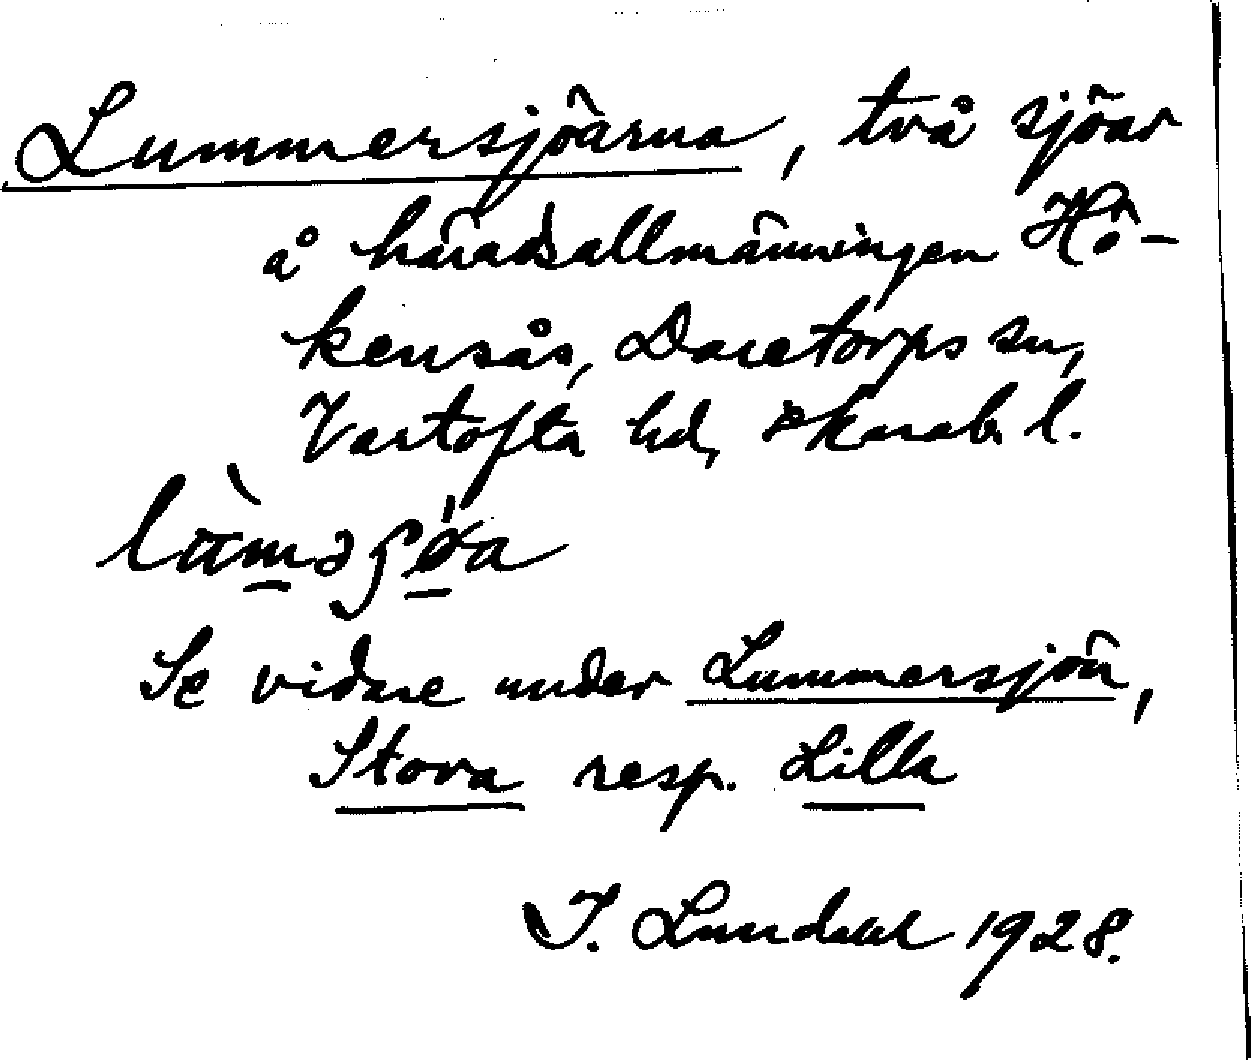 Lummersjöarna, två sjöar
å häradsallmänningen Hö-
kensås, Daretorps sn,
Vartofta hd, Skarab. l.
Se vidare under Lummersjön,
Stora resp. Lilla
I. Lundahl 1928.